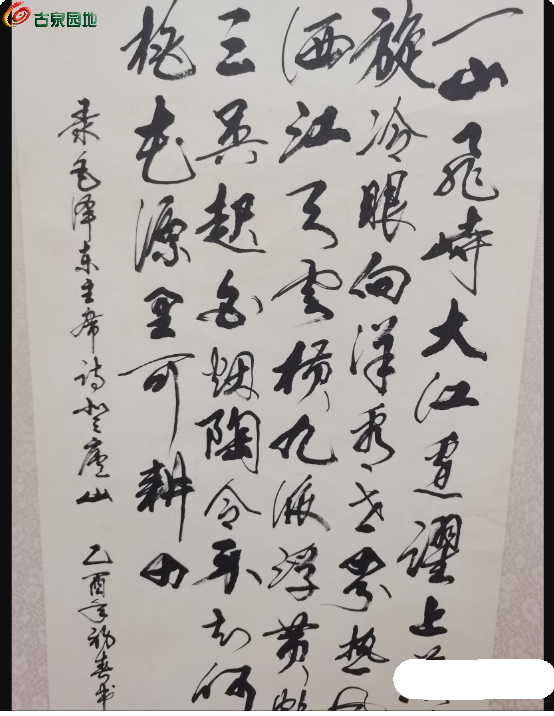 古泉园地
一山飛峙大江邊躍上
旋冷眼向洋看世界热风
洒江天雲横九派浮黄鹤
三吴起白烟陶令不知何
桃花源里可耕田
录毛澤东主席诗登廬山
乙酉年初春书